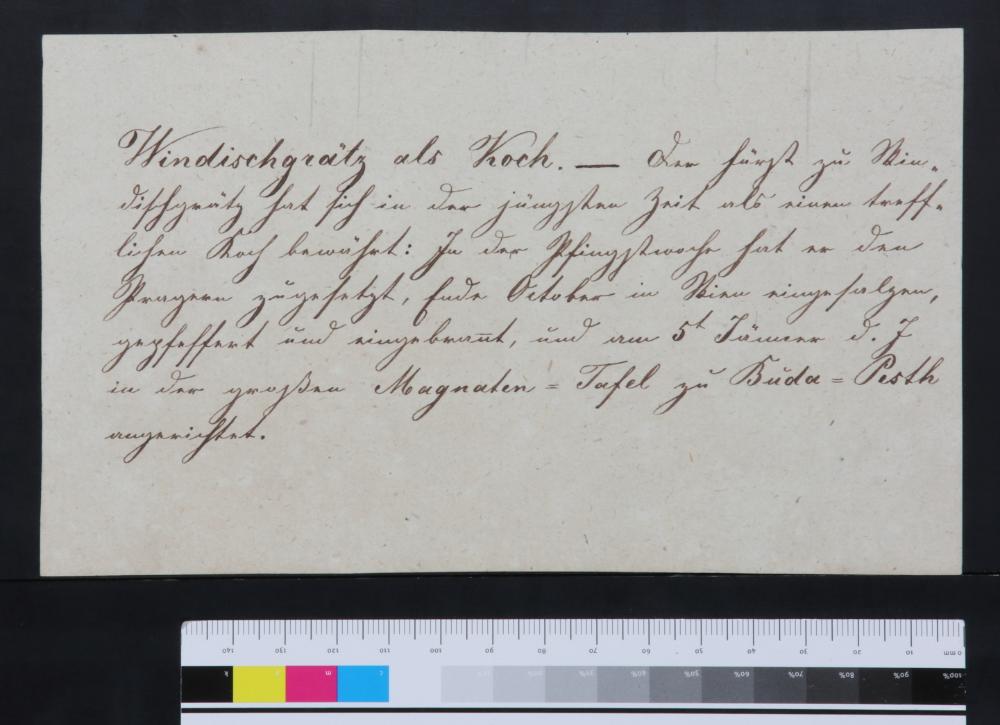 Windischgrätz als Koch. — Der Fürst zu Win-
dischgrätz hat sich in der jüngsten Zeit als einen treff-
lichen Koch bewährt: In der Pfingstwoche hat er den
Pragern zugesetzt, Ende October in Wien eingesalzen,
gepfeffert und eingebrannt, und am 5t Jänner d. J
in der großen Magnaten = Tafel zu Buda = Pesth
angerichtet.
140 130 120 110 100 90 80 70 60 50 40 30 20 10 0 mm
k y m c 40% 50% 60% 70% 80% 90% 100%